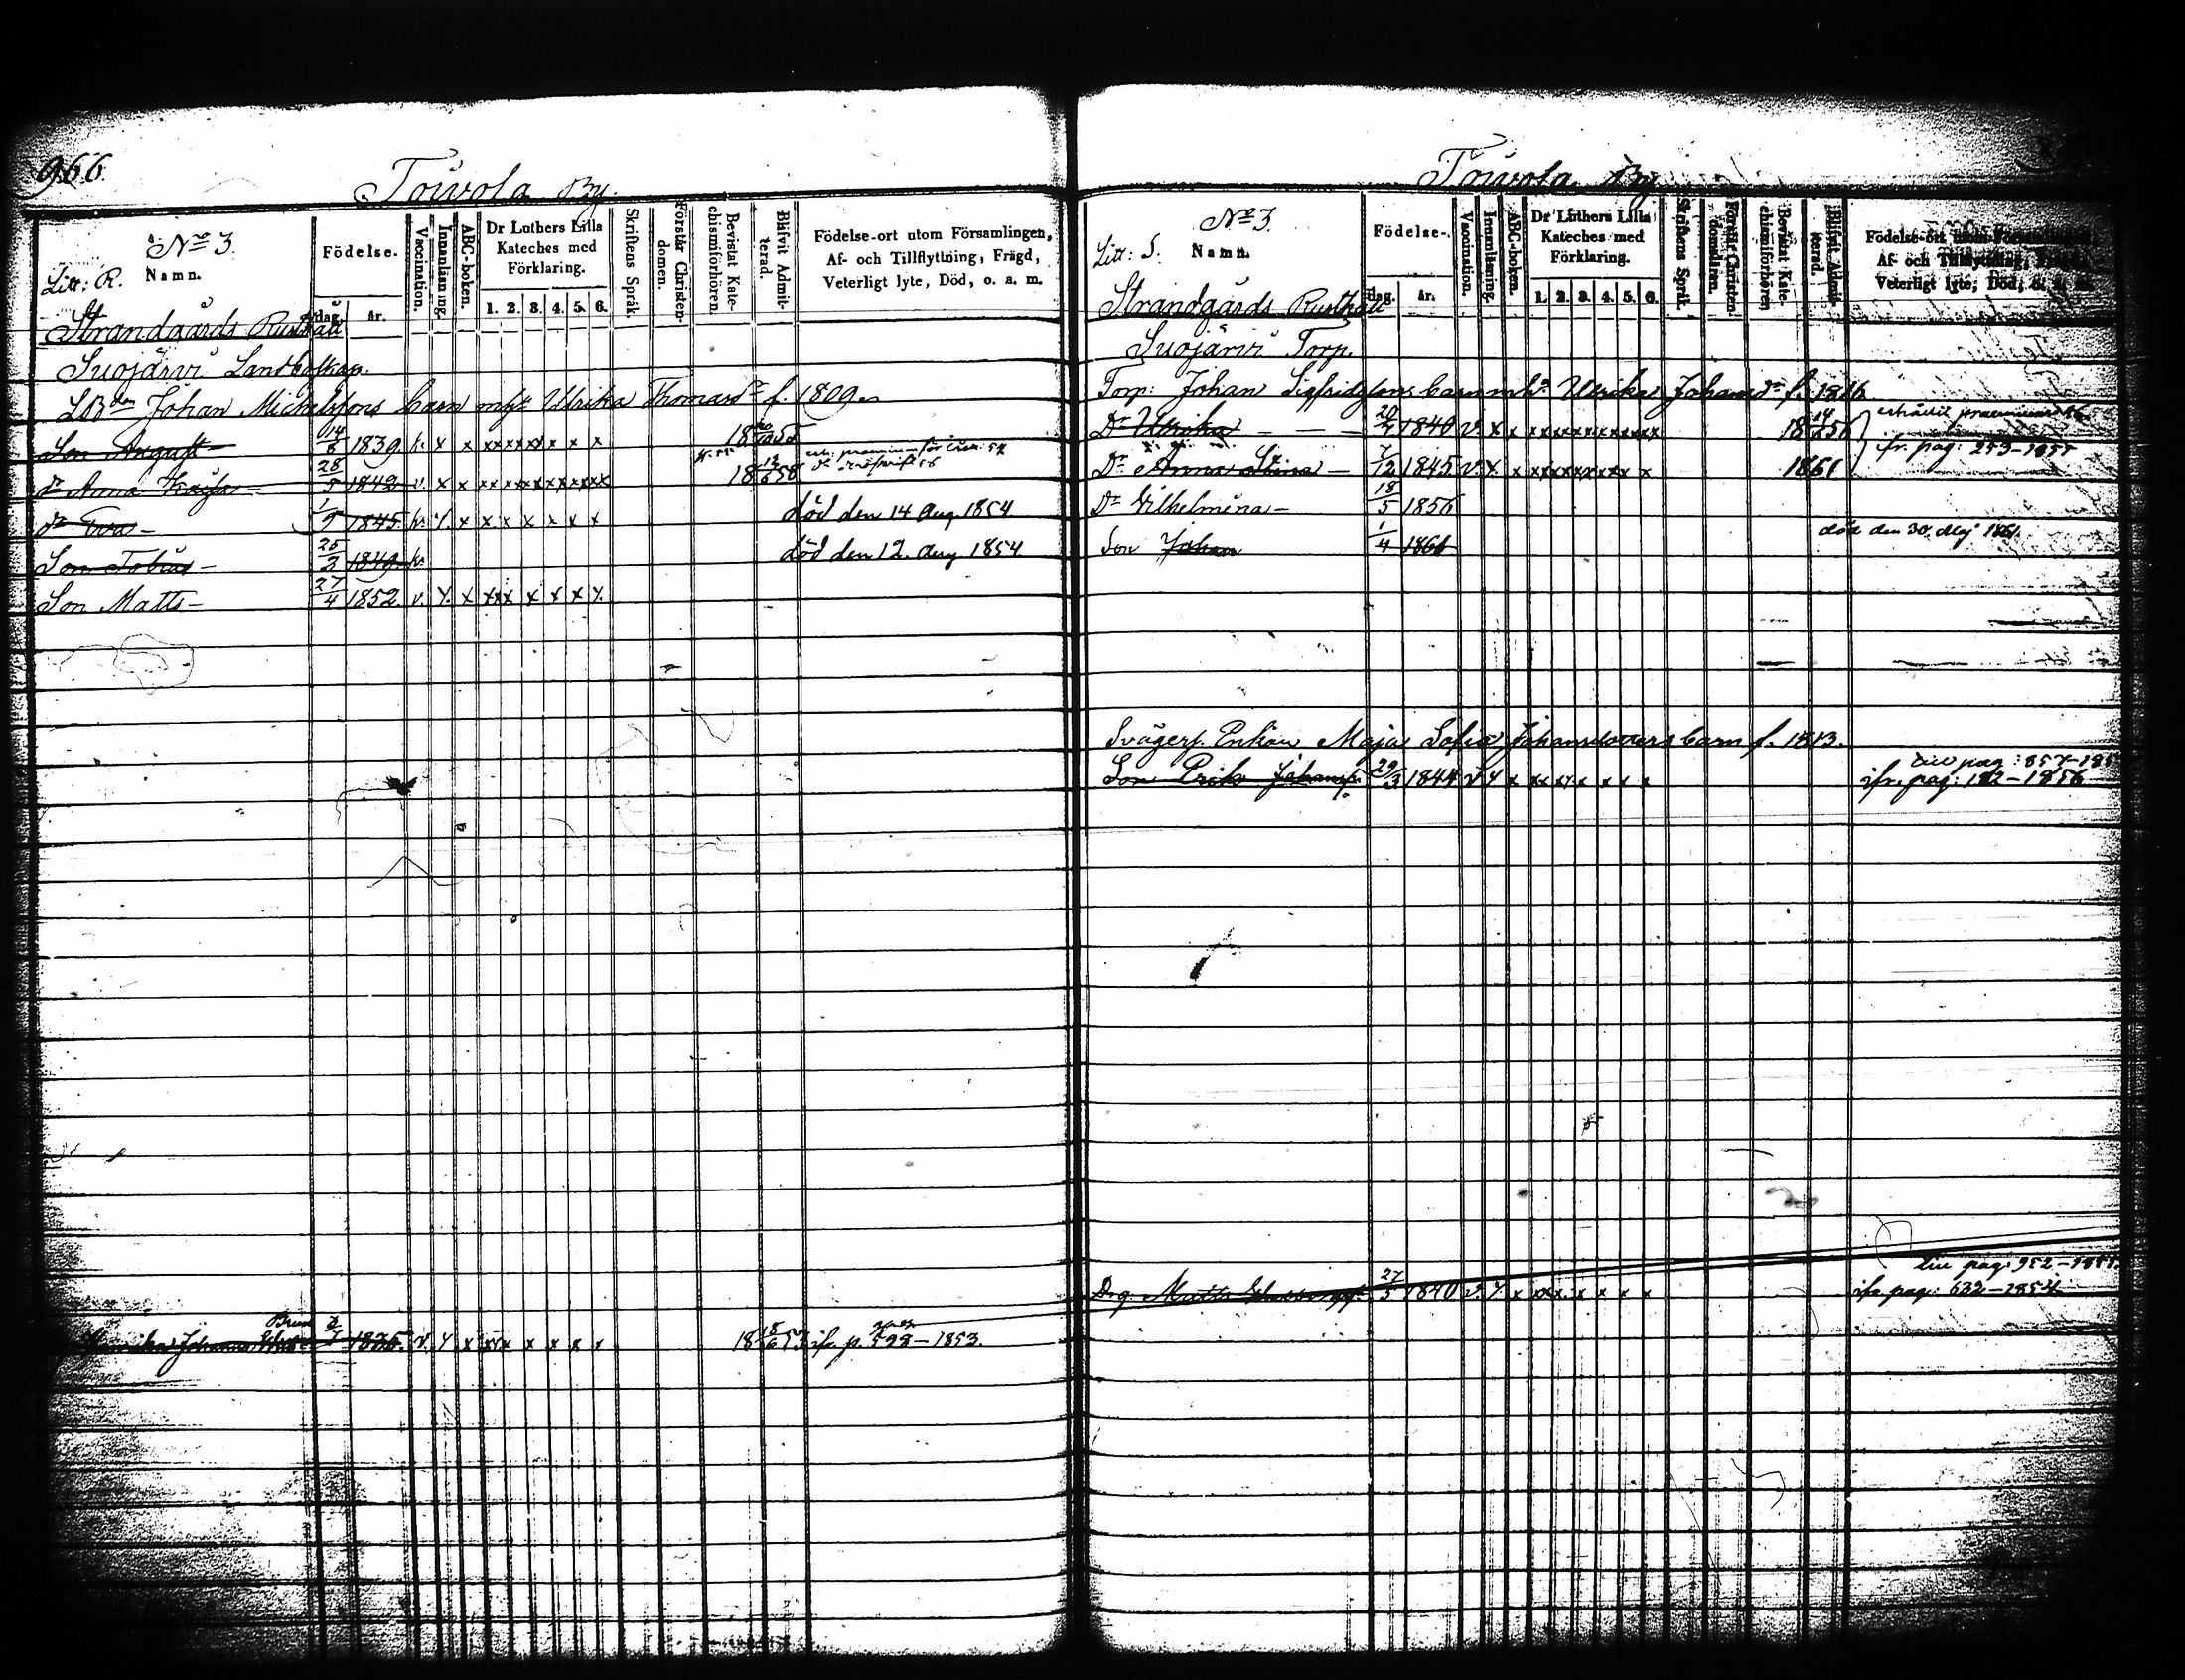 966.
Toivola By.
No 3.
Litt: R.
Namn.
Födelse.
dag.
år.
Vaccination.
Innanläsning.
ABC-boken.
Dr Luthers Lilla
Kateches med
Förklaring.
1. 2. 3. 4. 5. 6.
Skriftens Språk.
Förstår Christen-
domen.
Bevistat Kate-
chismiförhören.
Blifvit Admit-
terad.
Födelse-ort utom Församlingen,
Af- och Tillflyttning, Frägd,
Veterligt lyte, Död, o. a. m.
Strandgårds Rusthåll
Suojärvi Landbolkap.
Johan Michelssons barn Ulrika Thomasdr f. 1809.
Son August 14/6 1839. v. x x xxxxxx x x x
Dr Anna Kajsa 28/5 1842 v. x x xx xxxxxxxxx 18 12/6 58
Dr Eva 1/9 1845. v. x. x x x x x x x död den 14 Aug 1854
Son Tobias 25/2 1849 v. död den 12. Aug 1854
Son Matts 27/4 1852. v. x. x xxx x x x x.
Johanna 1836. v. x x xxx x x x x 18 18/6 53 p. 598–1853.
Toivola By
No 3.
Litt: S.
Namn.
Födelse.
dag.
år.
Vaccination.
Innanläsning.
ABC-boken.
Dr Luthers Lilla
Kateches med
Förklaring.
1. 2. 3. 4. 5. 6.
Skriftens Språk.
Förstår Christen-
domsläran.
Bevistat Kate-
chismiförhören
Blifvit Admit-
terad.
Födelse-ort utom Församlingen,
Af- och Tillflyttning, Frägd,
Veterligt lyte, Död, o. a. m.
Strandgårds Rusthåll
Suojärvi Torp.
Torp: Johan Sigfridssons barn Ulrika Johansdr f. 1816
Dr Ulrika 1840 v. x x xxxxxxxxxxx 18 14/6 56
fr. pag: 253–1855
Dr Anna Stina 7/12 1845 v. x. x xxxxxxxx x 1861
Dr Vilhelmina 18/5 1856
Son Johan 1/4 1861 död den 30. Maj 1861.
Svägersk. Enkan Maja Sofia Johansdotters barn f. 1813.
pag: 857–185
Son Erik Johansson 29/3 1844 v x x xx xx x x x x ifr. pag: 182–1856
pag: 952–1855
Dr. Matts 27/5 1840 v. x x xxx. x x x x ifr. pag: 632–1854